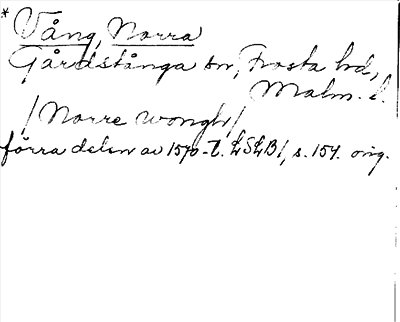 * Vång, Norra
Gårdstånga sn, Frosta hd,
Malm. l.
/Norre wongh/
förra delen av 1570-t. LSLB1, s. 154. orig.